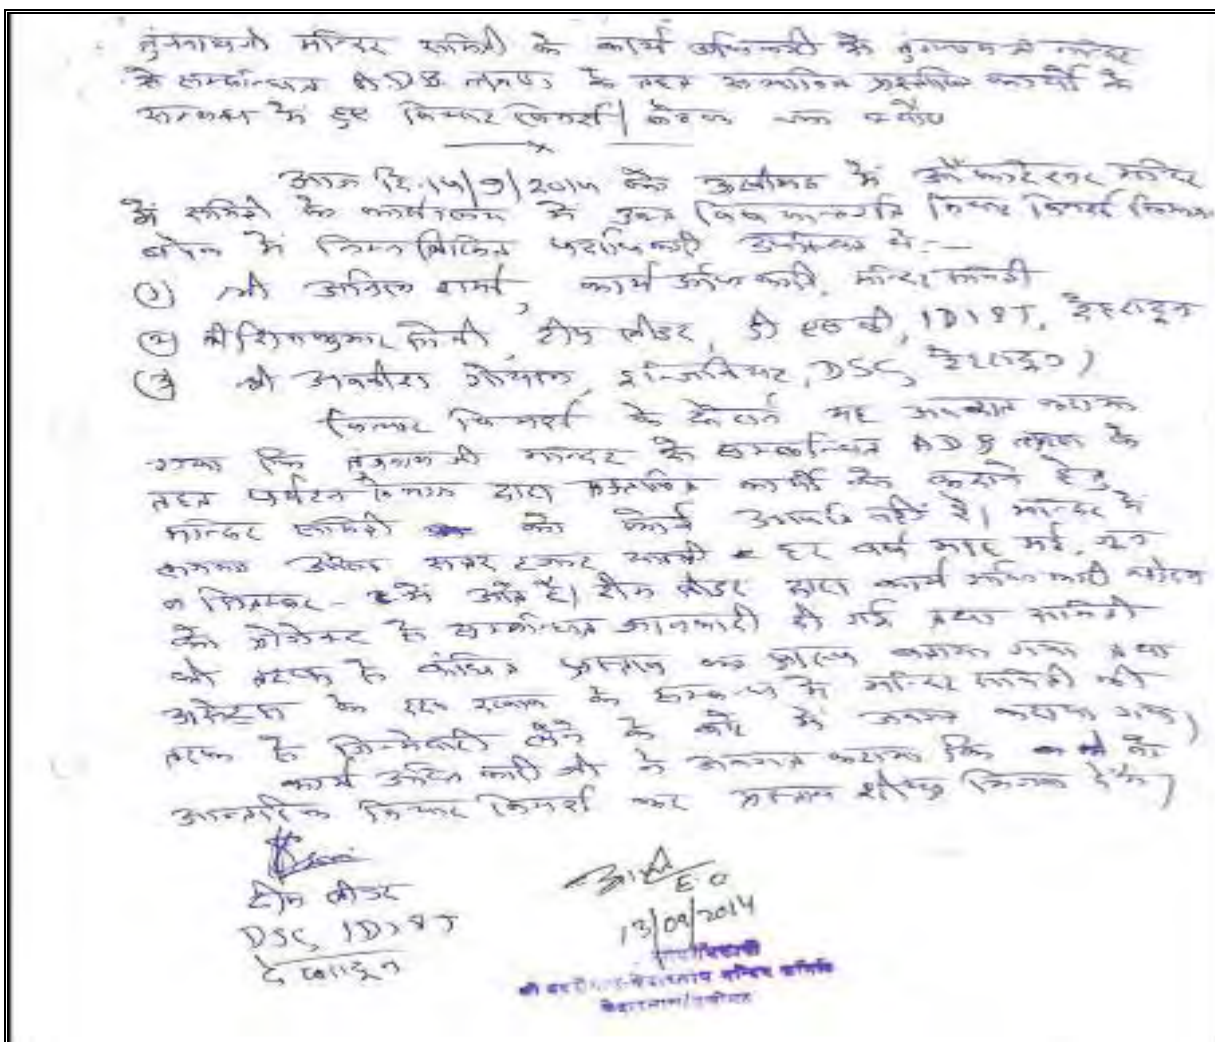 तुंगनाथजी मन्दिर समिति के कार्य अधिकारी से तुंगनाथ जी मन्दिर
से सम्बन्धित A.D.B. के तहत प्रस्तावित कार्यों के
सम्बन्ध में हुए विचार विमर्श/ बैठक का
आज दि. 14/9/2014 को ऊखीमठ में ओंकारेश्वर मन्दिर
में समिति के कार्यालय में उक्त विचार विमर्श
बैठक में निम्नलिखित पदाधिकारी उपस्थित थे:-
(1) श्री अनिल शर्मा, कार्य अधिकारी, मन्दिर समिति
(2) श्री टीम लीडर, डी एस सी, IDIPT, देहरादून
(3) श्री इन्जिनियर, DSC, देहरादून)
विचार विमर्श के दौरान यह अवगत कराया
गया कि तुंगनाथ जी मन्दिर से सम्बन्धित ADB के
तहत पर्यटन विभाग द्वारा प्रस्तावित कार्यों को कराने हेतु
मन्दिर समिति को कोई आपत्ति नहीं है। मन्दिर में
हजार यात्री हर वर्ष माह मई, जून
व सितम्बर में आते हैं। टीम लीडर द्वारा कार्य अधिकारी महोदय
को प्रोजेक्ट से सम्बन्धित जानकारी दी गई तथा समिति
की तरफ से प्रस्ताव का प्रारूप कराया गया तथा
के रख रखाव के सम्बन्ध में मन्दिर समिति की
तरफ से जिम्मेवारी लेने के बारे में अवगत कराया गया)
कार्य अधिकारी जी ने अवगत कराया कि वे
आन्तरिक विचार विमर्श कर प्रस्ताव शीघ्र भिजवा देंगे)
टीम लीडर
E.O
DSC, IDIPT
13/09/2014
देहरादून
कार्याधिकारी
श्री बदरीनाथ-केदारनाथ मन्दिर समिति
केदारनाथ/ऊखीमठ